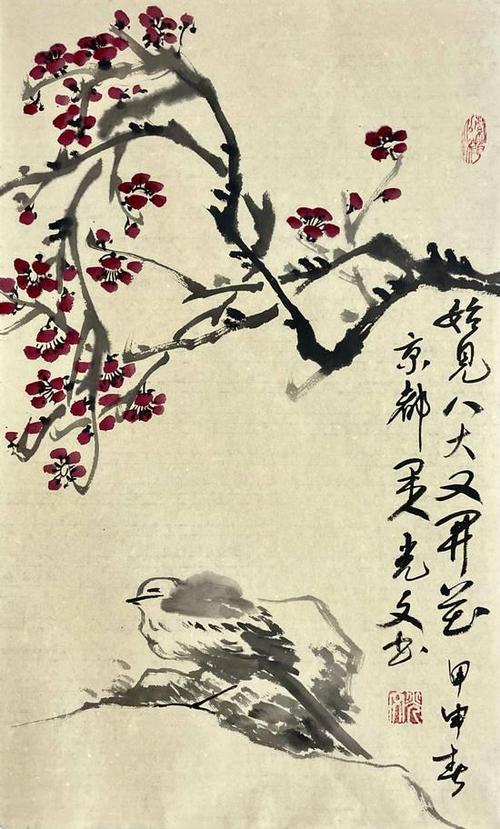 始見八大又開花 甲申春
京都光文书